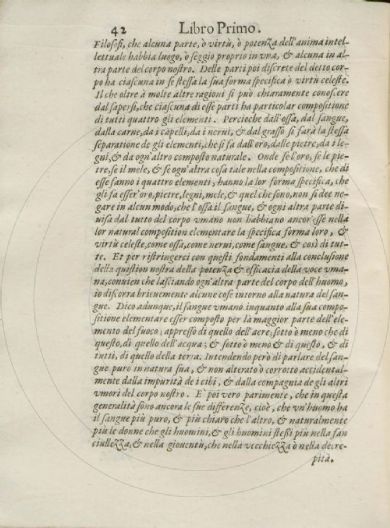 42 Libro Primo.
Filosofi, che alcuna parte, ò virtù, ò potenza dell'anima intel-
lettuale habbia luogo, ò seggio proprio in vna, & alcuna in al-
tra parte del corpo nostro. Delle parti poi discrete del detto cor-
po ha ciascuna in se stessa la sua forma specifica ò virtù celeste.
Il che oltre à molte altre ragioni si può chiaramente conoscere
dal sapersi, che ciascuna di esse parti ha particolar compositione
di tutti quattro gli elementi. Percioche dall'ossa, dal sangue,
dalla carne, da i capelli, da i nerui, & dal grasso si farà la stessa
separatione de gli elementi, che si fa dall'oro, dalle pietre, da i le-
gni, & da ogn'altro composto naturale. Onde se l'oro, se le pie-
tre, se il mele, & se ogn'altra cosa tale nella compositione, che di
esse fanno i quattro elementi, hanno la lor forma specifica, che
gli fa esser'oro, pietre, legni, mele, & quel che sono, non si dee ne-
gare in alcun modo, che l'ossa il sangue, & ogni altra parte di-
uisa dal tutto del corpo vmano non habbiano ancor'esse nella
lor natural composition elementare la specifica forma loro, &
virtù celeste, come ossa, come nerui, come sangue, & così di tut-
te. Et per ristringerci con questi fondamenti alla conclusione
della question nostra della potenza & efficacia della voce vma-
na, conuien che lasciando ogn'altra parte del corpo dell'huomo,
io discorra brieuemente alcune cose intorno alla natura del san-
gue. Dico adunque, il sangue vmano inquanto alla sua compo-
sitione elementare esser composto per la maggior parte dell'ele-
mento del fuoco, appresso di quello dell'aere, sotto ò meno che di
questo, di quello dell'acqua; & sotto ò meno & di questo, & di
tutti, di quello della terra. Intendendo però di parlare del san-
gue puro in natura sua, & non alterato ò corrotto accidental-
mente dalla impurità de i cibi, & dalla compagnia de gli altri
vmori del corpo nostro. E' poi vero parimente, che in questa
generalità sono ancora le sue differenze, cioè, che vn'huomo ha
il sangue più puro, & più chiaro che l'altro, & naturalmente
più le donne che gli huomini, & gli huomini stessi più nella fan
ciullezza, & nella giouentù, che nella vecchiezza ò nella decre-
pità.